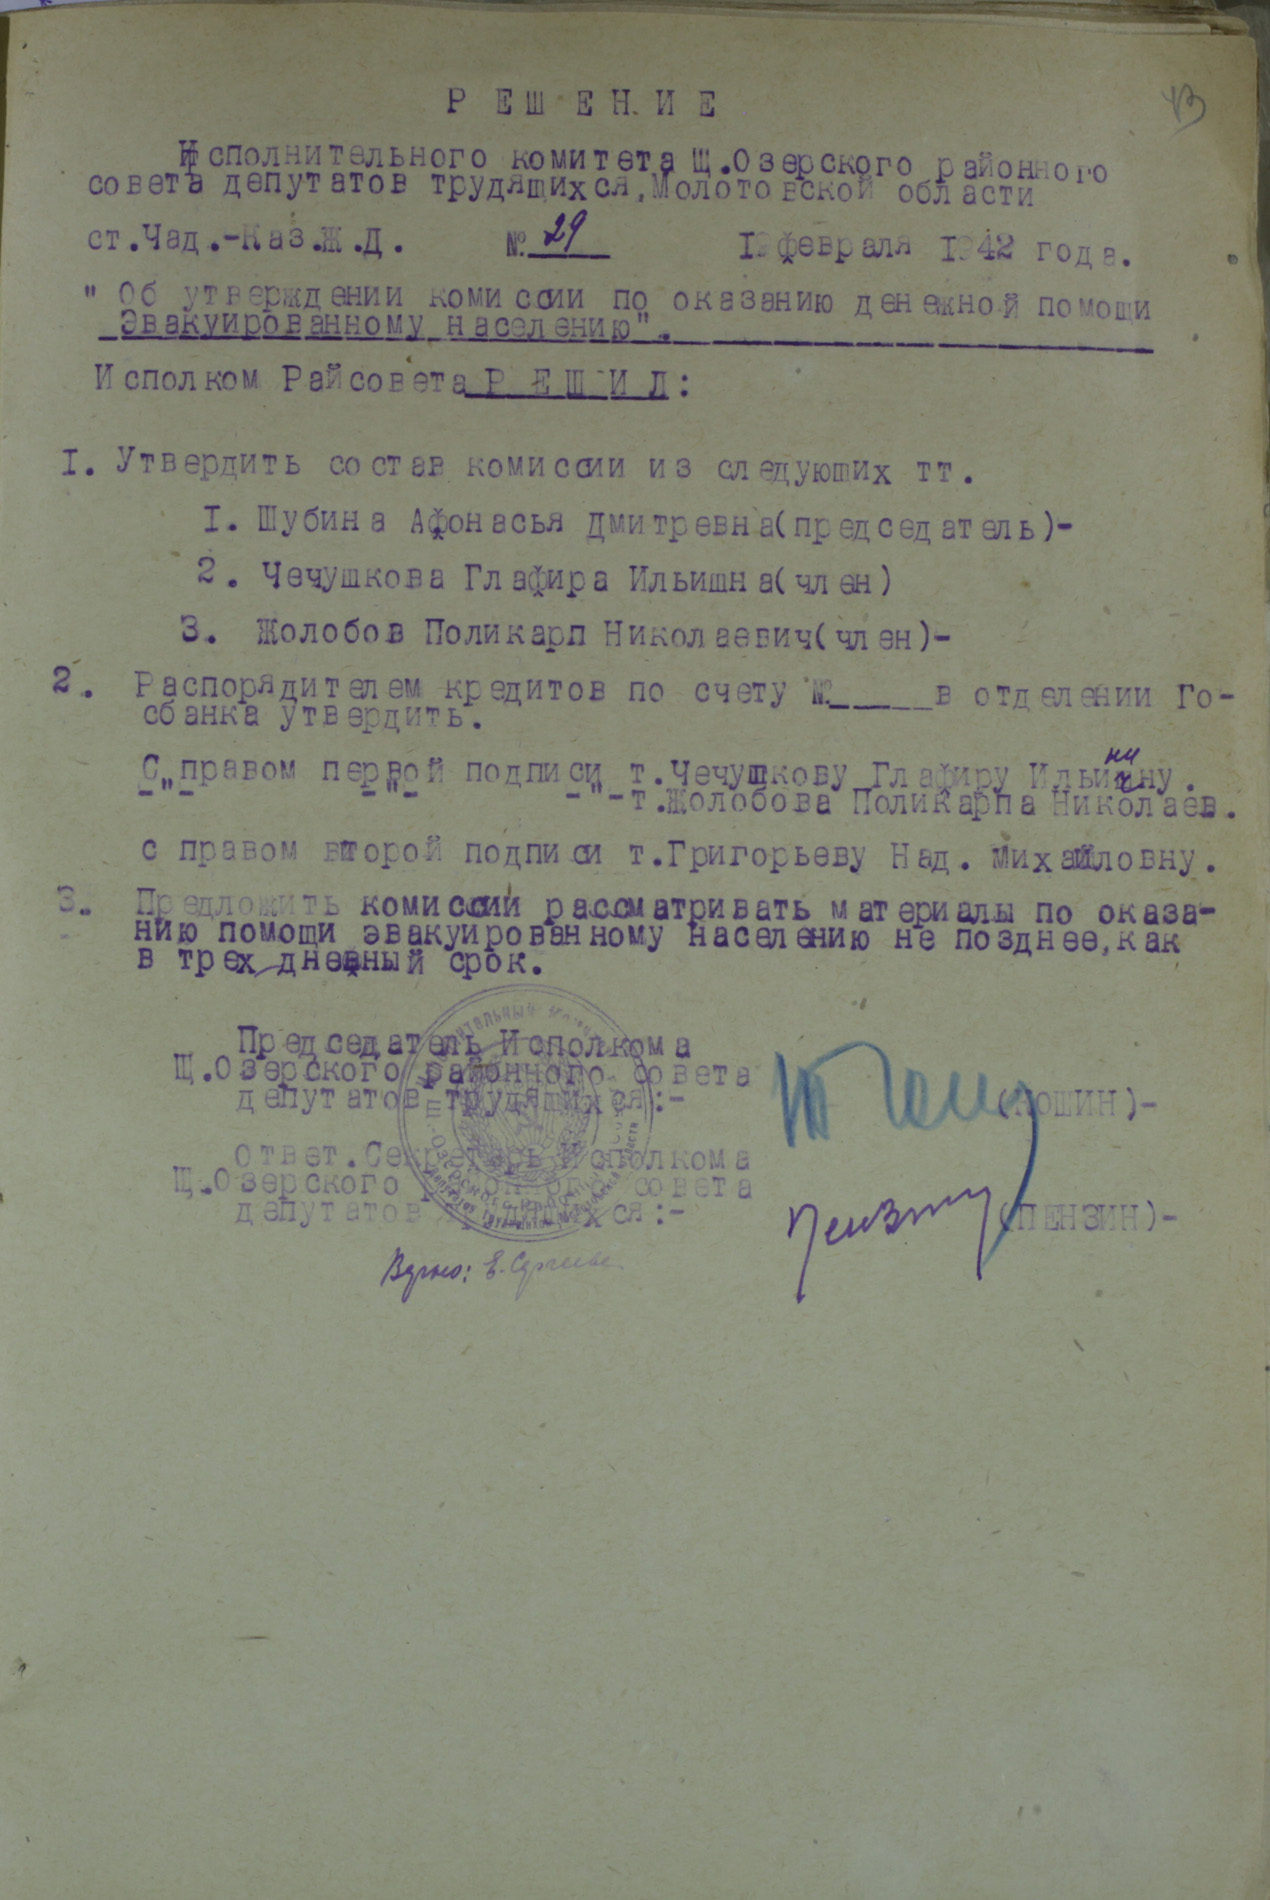 Р Е Ш Е Н И Е
Исполнительного комитета Щ.Озерского районного
совета депутатов трудящихся, Молотовской области
ст.Чад.-Каз.Ж.Д. № 29 19 февраля 1942 года.
" Об утверждении комиссии по оказанию денежной помощи
Эвакуированному населению".
Исполком Райсовета Р Е Ш И Л :
I. Утвердить состав комиссии из следующих тт.
I. Шубина Афонасья Дмитревна(председатель)-
2. Чечушкова Глафира Ильишна(член)
3. Жолобов Поликарп Николаевич(член)-
2. Распорядителем кредитов по счету №_____в отделении Го-
сбанка утвердить.
С правом первой подписи т.Чечушкову Глафиру Ильиничну.
-"- -"- -"-т.Жолобова Поликарпа Николаев.
с правом второй подписи т.Григорьеву Над. Михайловну.
3. Предложить комиссии рассматривать материалы по оказа-
нию помощи эвакуированному населению не позднее, как
в трех дневный срок.
Председатель Исполкома
Щ.Озерского районного совета
депутатов трудящихся:- (ЮШИН)-
ответ.Секретарь Исполкома
Щ.Озерского районного совета
депутатов трудящихся:- (ПЕНЗИН)-
Верно: